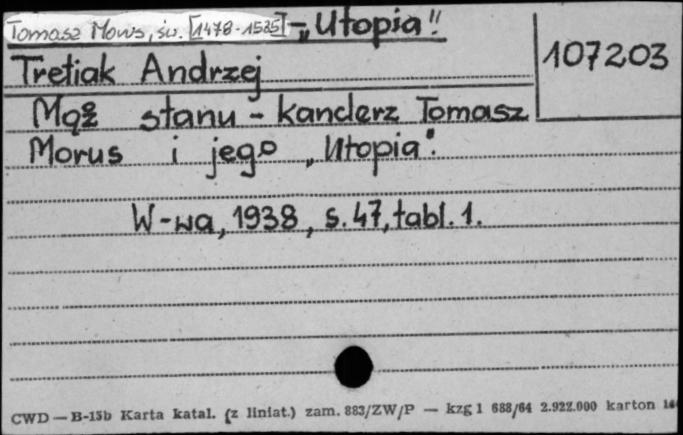 Tomasz Morus, św. [1478-1535] - „Utopia"
107203
Tretiak Andrzej
Mąż stanu - kanclerz Tomasz
Morus i jego „Utopia".
W-wa, 1938, s. 47, tabl. 1.
CWD — B-15b Karta katal. (z liniat.) zam. 883/ZW/P — kzg 1 688/64 2.922.000 karton